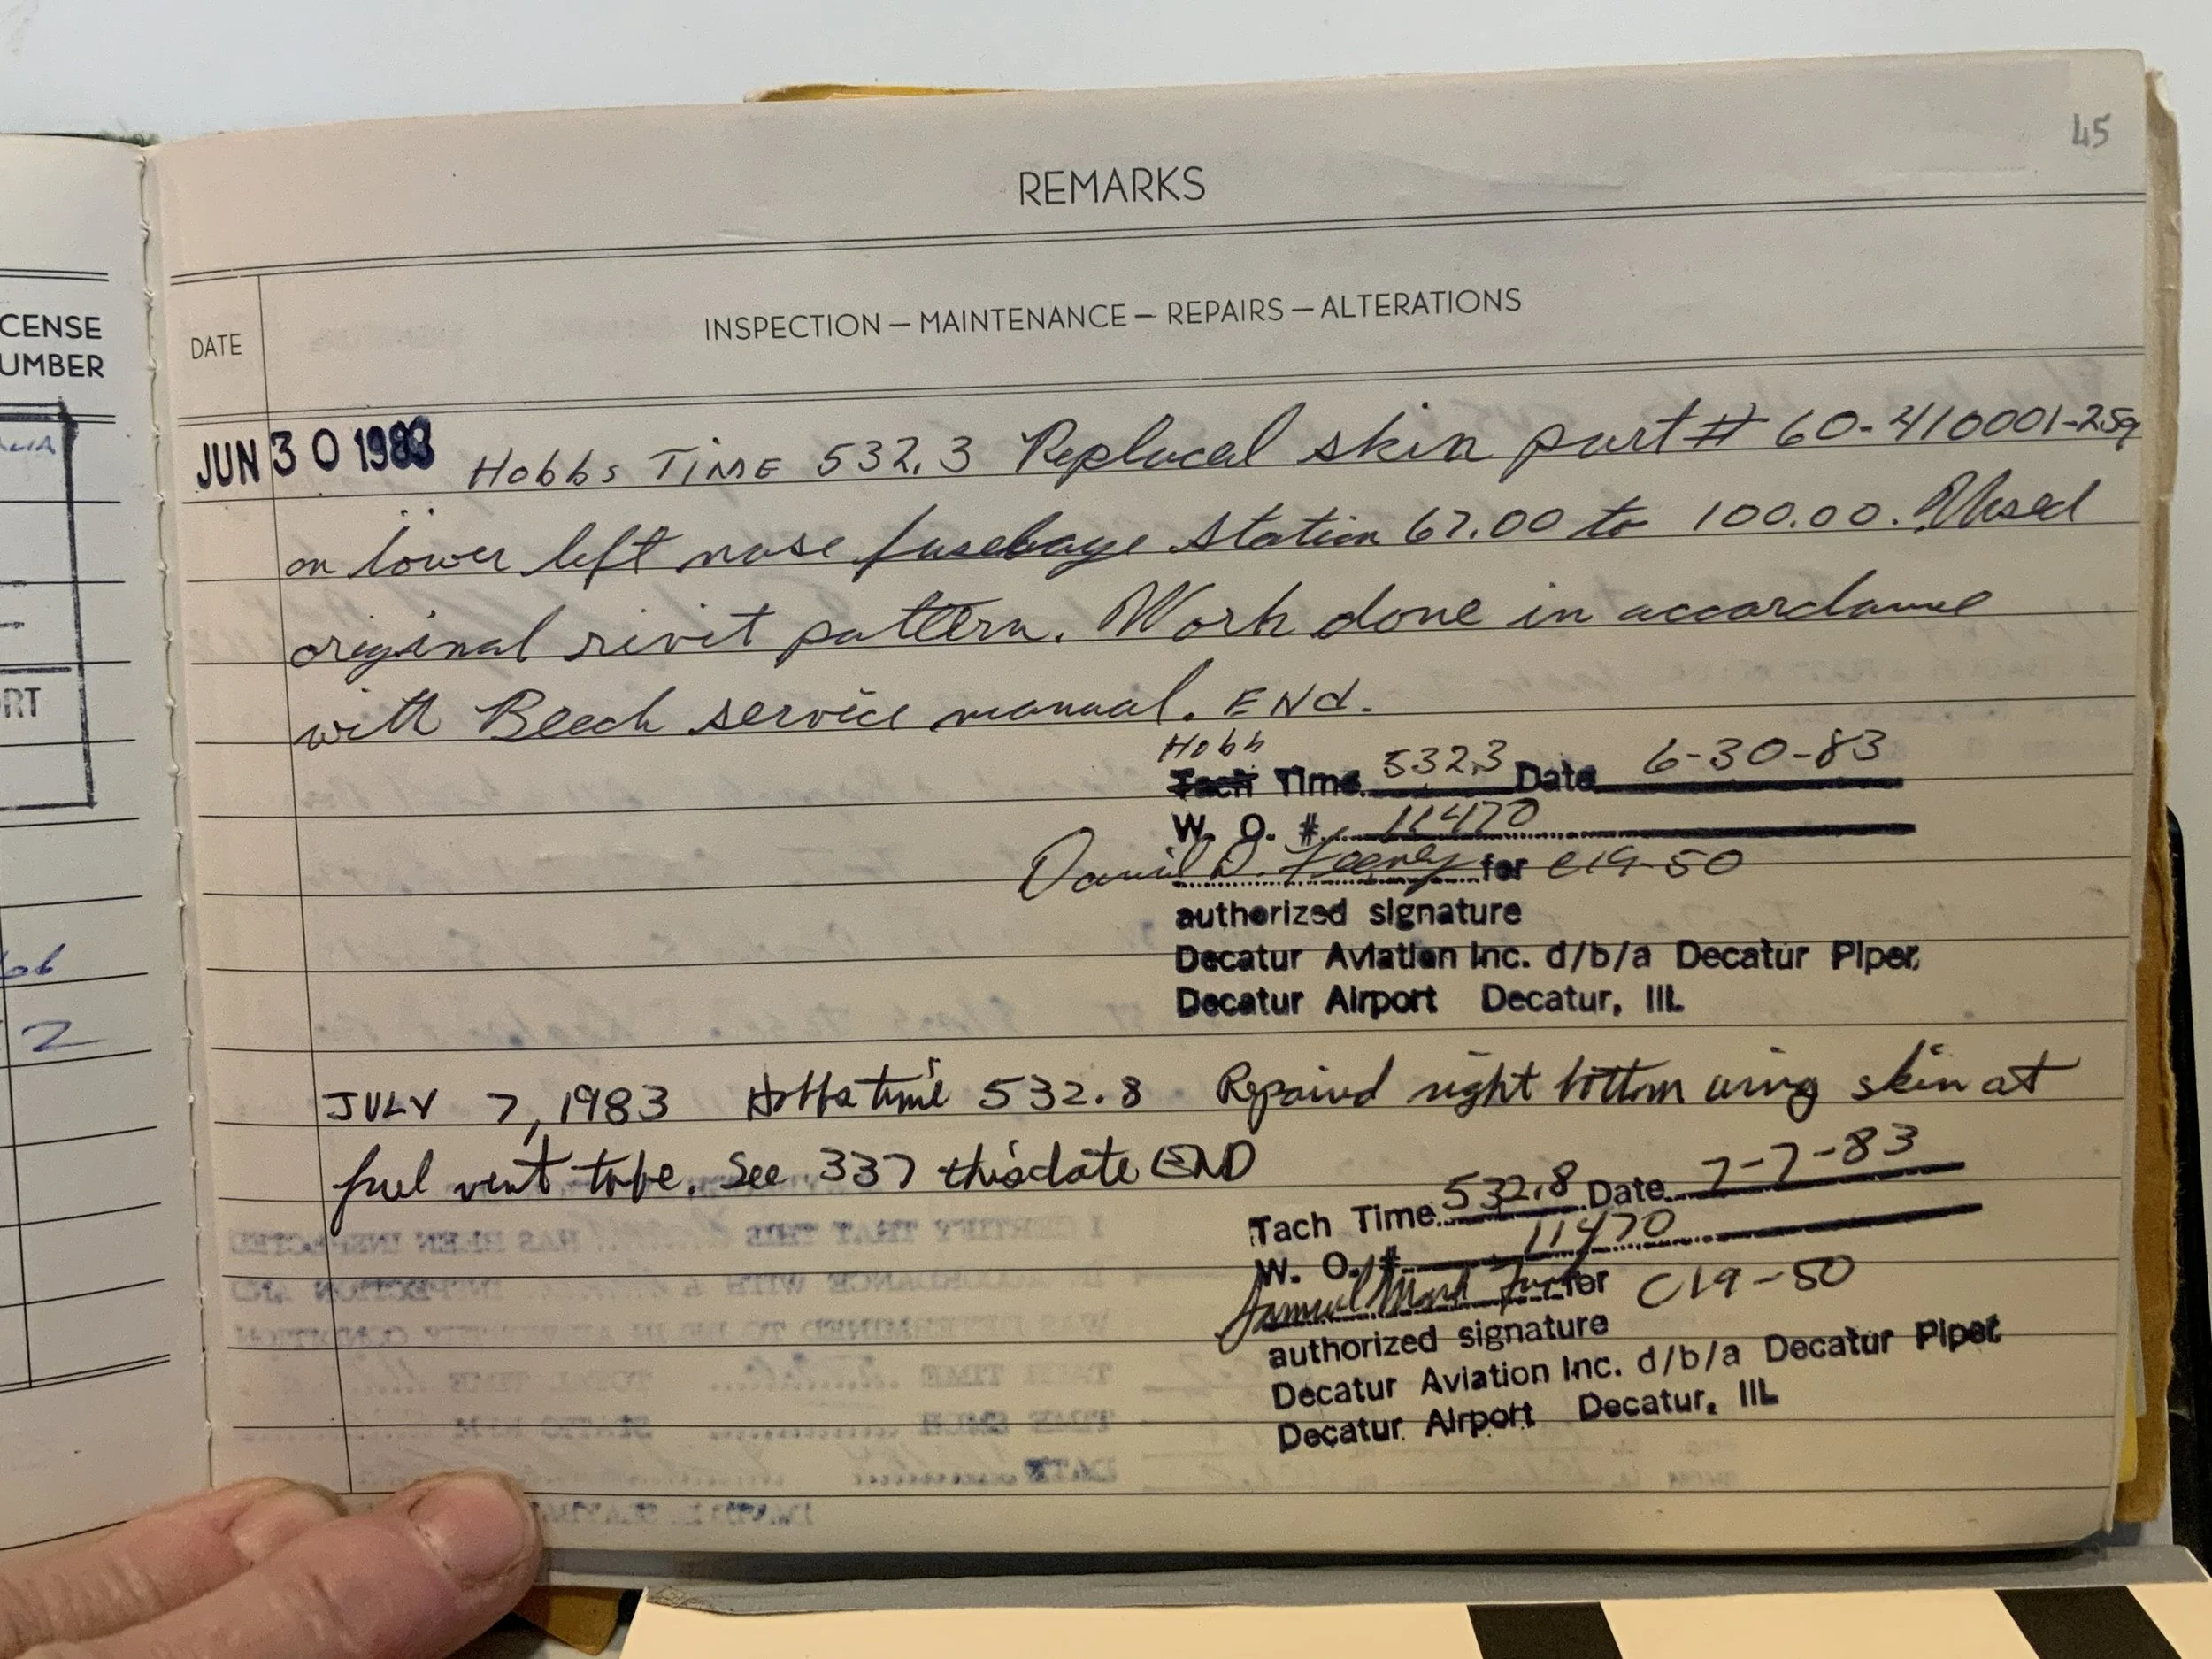 45
REMARKS
CENSE
UMBER
DATE
INSPECTION — MAINTENANCE — REPAIRS — ALTERATIONS
JUN 30 1983 Hobbs TIME 532.3 Replaced skin part # 60-410001-259
on lower left nose fusebage station 67.00 to 100.00. Used
original rivit pattern. Work done in accordance
with Beech service manual. END.
Hobb
Tach Time 532.3 Date 6-30-83
W. O. # 11470
Daniel D. Feeney for C19-50
authorized signature
Decatur Aviation Inc. d/b/a Decatur Piper
Decatur Airport Decatur, Ill.
RT
2
JULY 7, 1983 Hobbs time 532.8 Repaired right bottom wing skin at
fuel vent tube. See 337 this date END
Tach Time 532.8 Date 7-7-83
W. O. # 11470
Samuel for C19-50
authorized signature
Decatur Aviation Inc. d/b/a Decatur Piper
Decatur Airport Decatur, Ill.